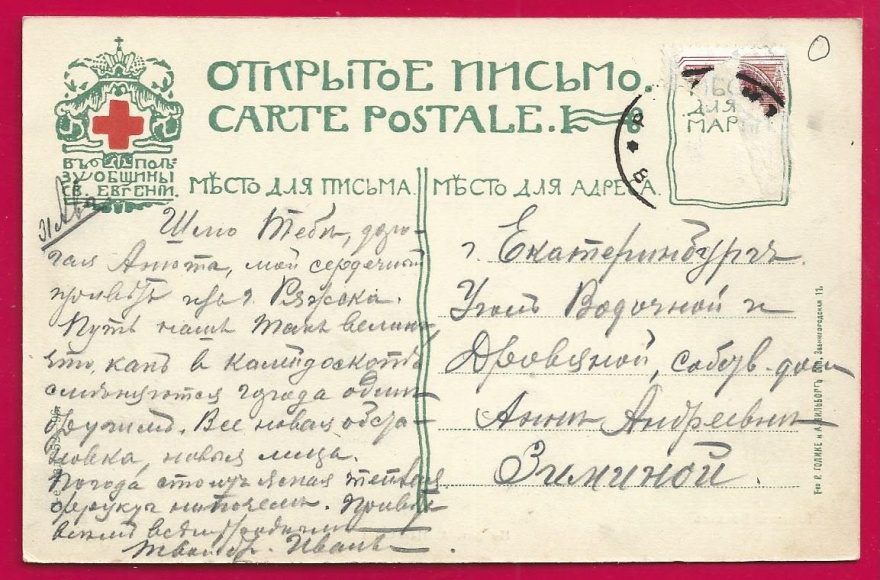 ОТКРЫТОЕ ПИСЬМО.
CARTE POSTALE.
ВЪ ПОЛЬ-
ЗУ ОБЩИНЫ
СВ. ЕВГЕНІИ.
МѢСТО ДЛЯ ПИСЬМА.
МѢСТО ДЛЯ АДРЕСА.
ДЛЯ
МАР
Шлю Тебѣ, доро-
гая Анюта, мой сердечный
привѣтъ изъ г. Ряжска.
Путь нашъ такъ великъ,
что, какъ в калейдоскопѣ
смѣняются города одинъ
другимъ. Все новая обста-
новка, новыя лица.
Погода стоитъ ясная теплая
Привѣтъ
всемъ роднымъ
Твой бр. Иванъ
г. Екатеринбургъ.
Уголъ Водочной и
Дровяной, собств. дом
Аннѣ Андреевнѣ
Зиминой.
Т-во Р. ГОЛИКЕ и А. ВИЛЬБОРГЪ. СПб. Звенигородская 11.